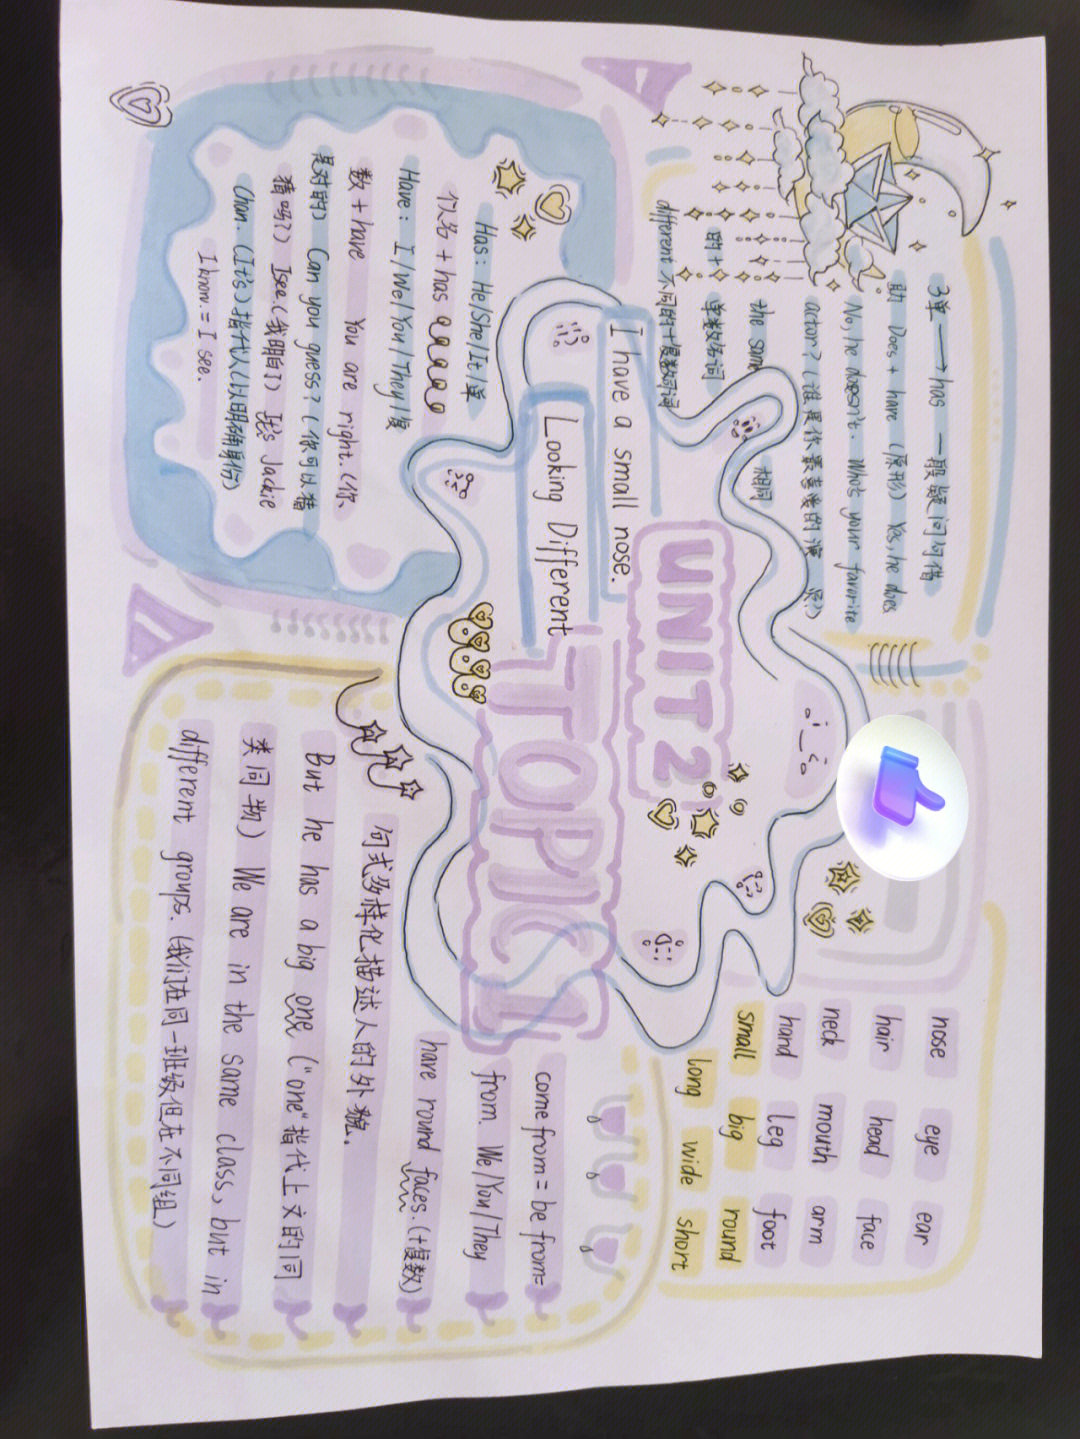 UNIT 2
TOPIC 1
I have a small nose.
Looking Different
3单 → has 一般疑问句借
助 Does + have (原形) Yes, he does
No, he doesn't. Who's your favorite
actor? (谁是你最喜爱的演员?)
the same 相同
的 + 单数名词
different 不同的 + 复数名词
Has: He/She/It/单
个人名 + has
Have: I/We/You/They/复
数 + have You are right. (你
是对的) Can you guess? (你可以猜
猜吗?) I see. (我明白了) It's Jackie
Chan. (It's) 指代人(以明确身份)
I know. = I see.
nose eye ear
hair head face
neck mouth arm
hand leg foot
small big round
long wide short
come from = be from =
from. We/You/They
have round faces. (+复数)
句式多样化描述人的外貌.
But he has a big one ("one"指代上文的同
类同物) We are in the same class, but in
different groups. (我们在同一班级但在不同组)